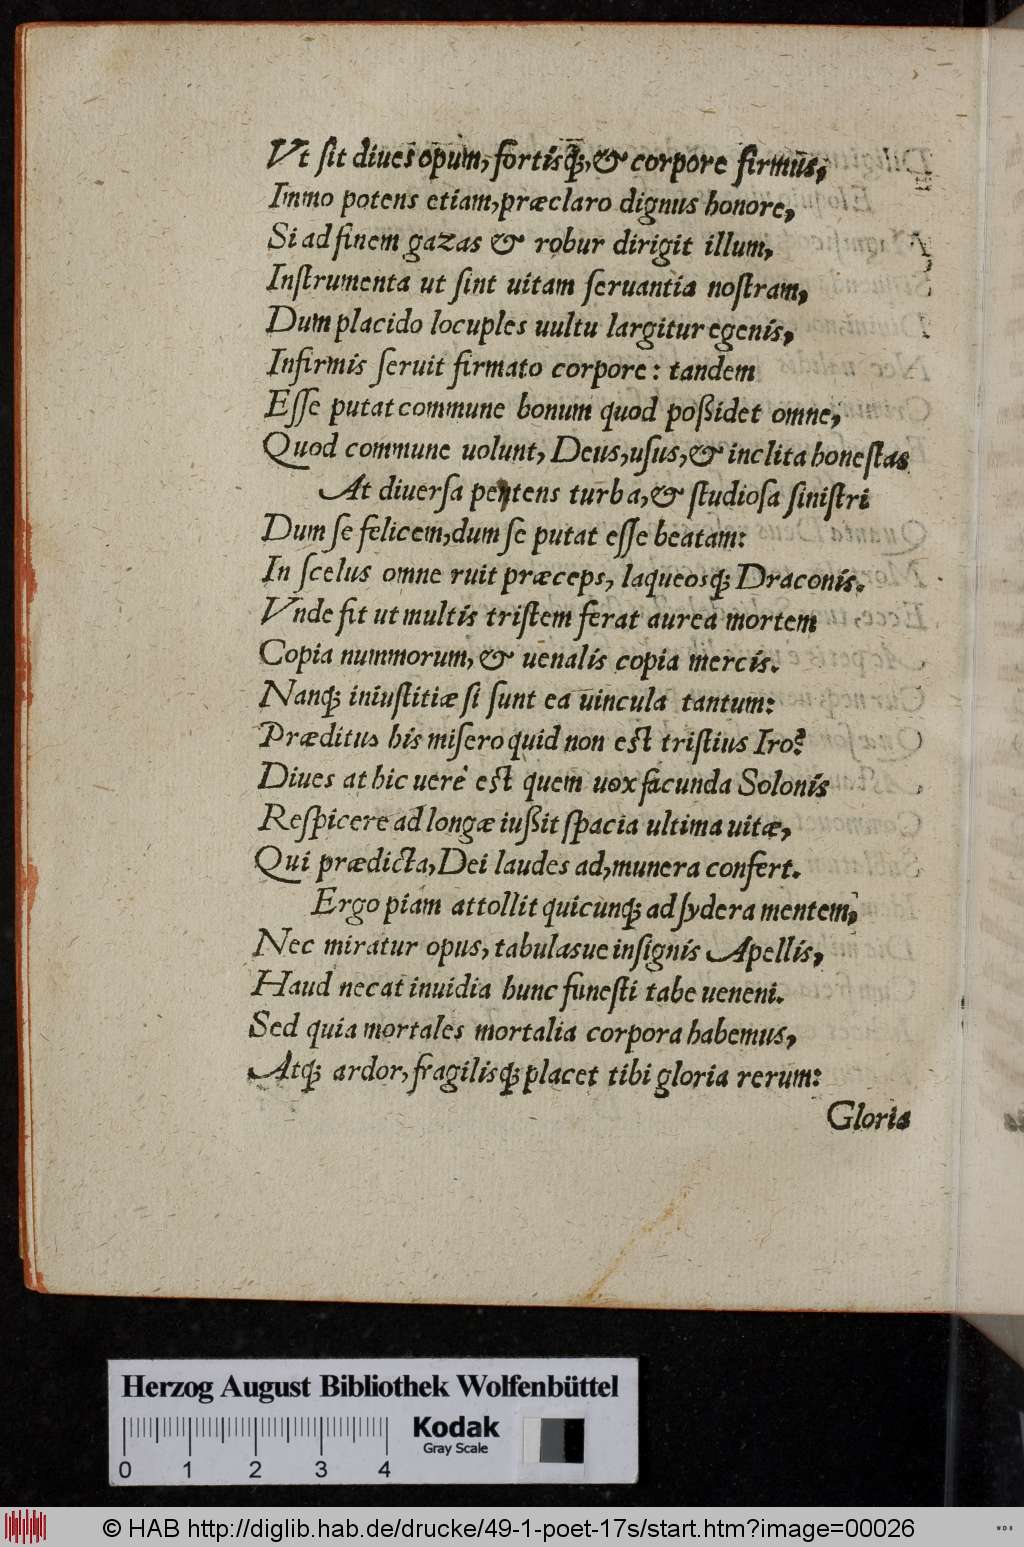 Vt ſit diues opum, fortisq́;, & corpore firmus,
Immo potens etiam, præclaro dignus honore,
Si ad finem gazas & robur dirigit illum,
Inſtrumenta ut ſint uitam ſeruantia noſtram,
Dum placido locuples uultu largitur egenis,
Infirmis ſeruit firmato corpore: tandem
Eſſe putat commune bonum quod poßidet omne,
Quod commune uolunt, Deus, uſus, & inclita honeſtas
At diuerſa petens turba, & ſtudioſa ſiniſtri
Dum ſe felicem, dum ſe putat eſſe beatam:
In ſcelus omne ruit præceps, laqueosq́; Draconis.
Vnde fit ut multis triſtem ferat aurea mortem
Copia nummorum, & uenalis copia mercis.
Nanq́; iniuſtitiæ ſi ſunt ea uincula tantum:
Præditus his miſero quid non eſt triſtius Iro?
Diues at hic uerè eſt quem uox facunda Solonis
Reſpicere ad longæ iußit ſpacia ultima uitæ,
Qui prædicta, Dei laudes ad, munera confert.
Ergo piam attollit quicunq́; ad ſydera mentem,
Nec miratur opus, tabulasue inſignis Apellis,
Haud necat inuidia hunc funeſti tabe ueneni.
Sed quia mortales mortalia corpora habemus,
Atq́; ardor, fragilisq́; placet tibi gloria rerum:
Gloria
Herzog August Bibliothek Wolfenbüttel
Kodak
Gray Scale
0 1 2 3 4
© HAB http://diglib.hab.de/drucke/49-1-poet-17s/start.htm?image=00026